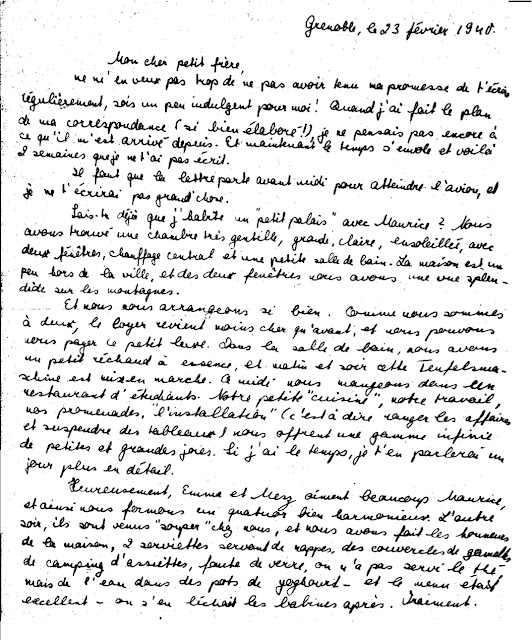 Grenoble, le 23 février 1940.
Mon cher petit frère,
ne m'en veux pas trop de ne pas avoir tenu ma promesse de t'écrire
régulièrement, sois un peu indulgent pour moi! Quand j'ai fait le plan
de ma correspondance (si bien élaboré!), je ne pensais pas encore à
ce qu'il m'est arrivé depuis. Et maintenant le temps s'envole et voilà
2 semaines que je ne t'ai pas écrit.
Il faut que la lettre parte avant midi pour atteindre l'avion, et
je ne t'écrirai pas grand'chose.
Sais-tu déjà que j'habite un "petit palais" avec Maurice? Nous
avons trouvé une chambre très gentille, grande, claire, ensoleillée, avec
deux fenêtres, chauffage central et une petite salle de bain. La maison est un
peu hors de la ville, et des deux fenêtres nous avons une vue splen-
dide sur les montagnes.
Et nous nous arrangeons si bien. Comme nous sommes
à deux, le loyer revient moins cher qu'avant, et nous pouvons
nous payer ce petit luxe. Dans la salle de bain, nous avons
un petit réchaud à essence, et matin et soir cette Teufelsma-
schine est mise en marche. A midi nous mangeons dans un
restaurant d'étudiants. Notre petite "cuisine", notre travail,
nos promenades, "l'installation" (c'est à dire ranger les affaires
et suspendre des tableaux) nous offrent une gamme infinie
de petites et grandes joies. Si j'ai le temps, je t'en parlerai un
jour plus en détail.
Heureusement, Emma et Mesz aiment beaucoup Maurice,
et ainsi nous formons un quatuor bien harmonieux. L'autre
soir, ils sont venus "souper" chez nous, et nous avons fait les honneurs
de la maison, 2 serviettes servant de nappes, des couvercles de gamelles
de camping d'assiettes, faute de verre, on n'a pas servi le thé
mais de l'eau dans des pots de yoghourt - et le menu était
excellent - on s'en léchait les babines après. Vraiment.